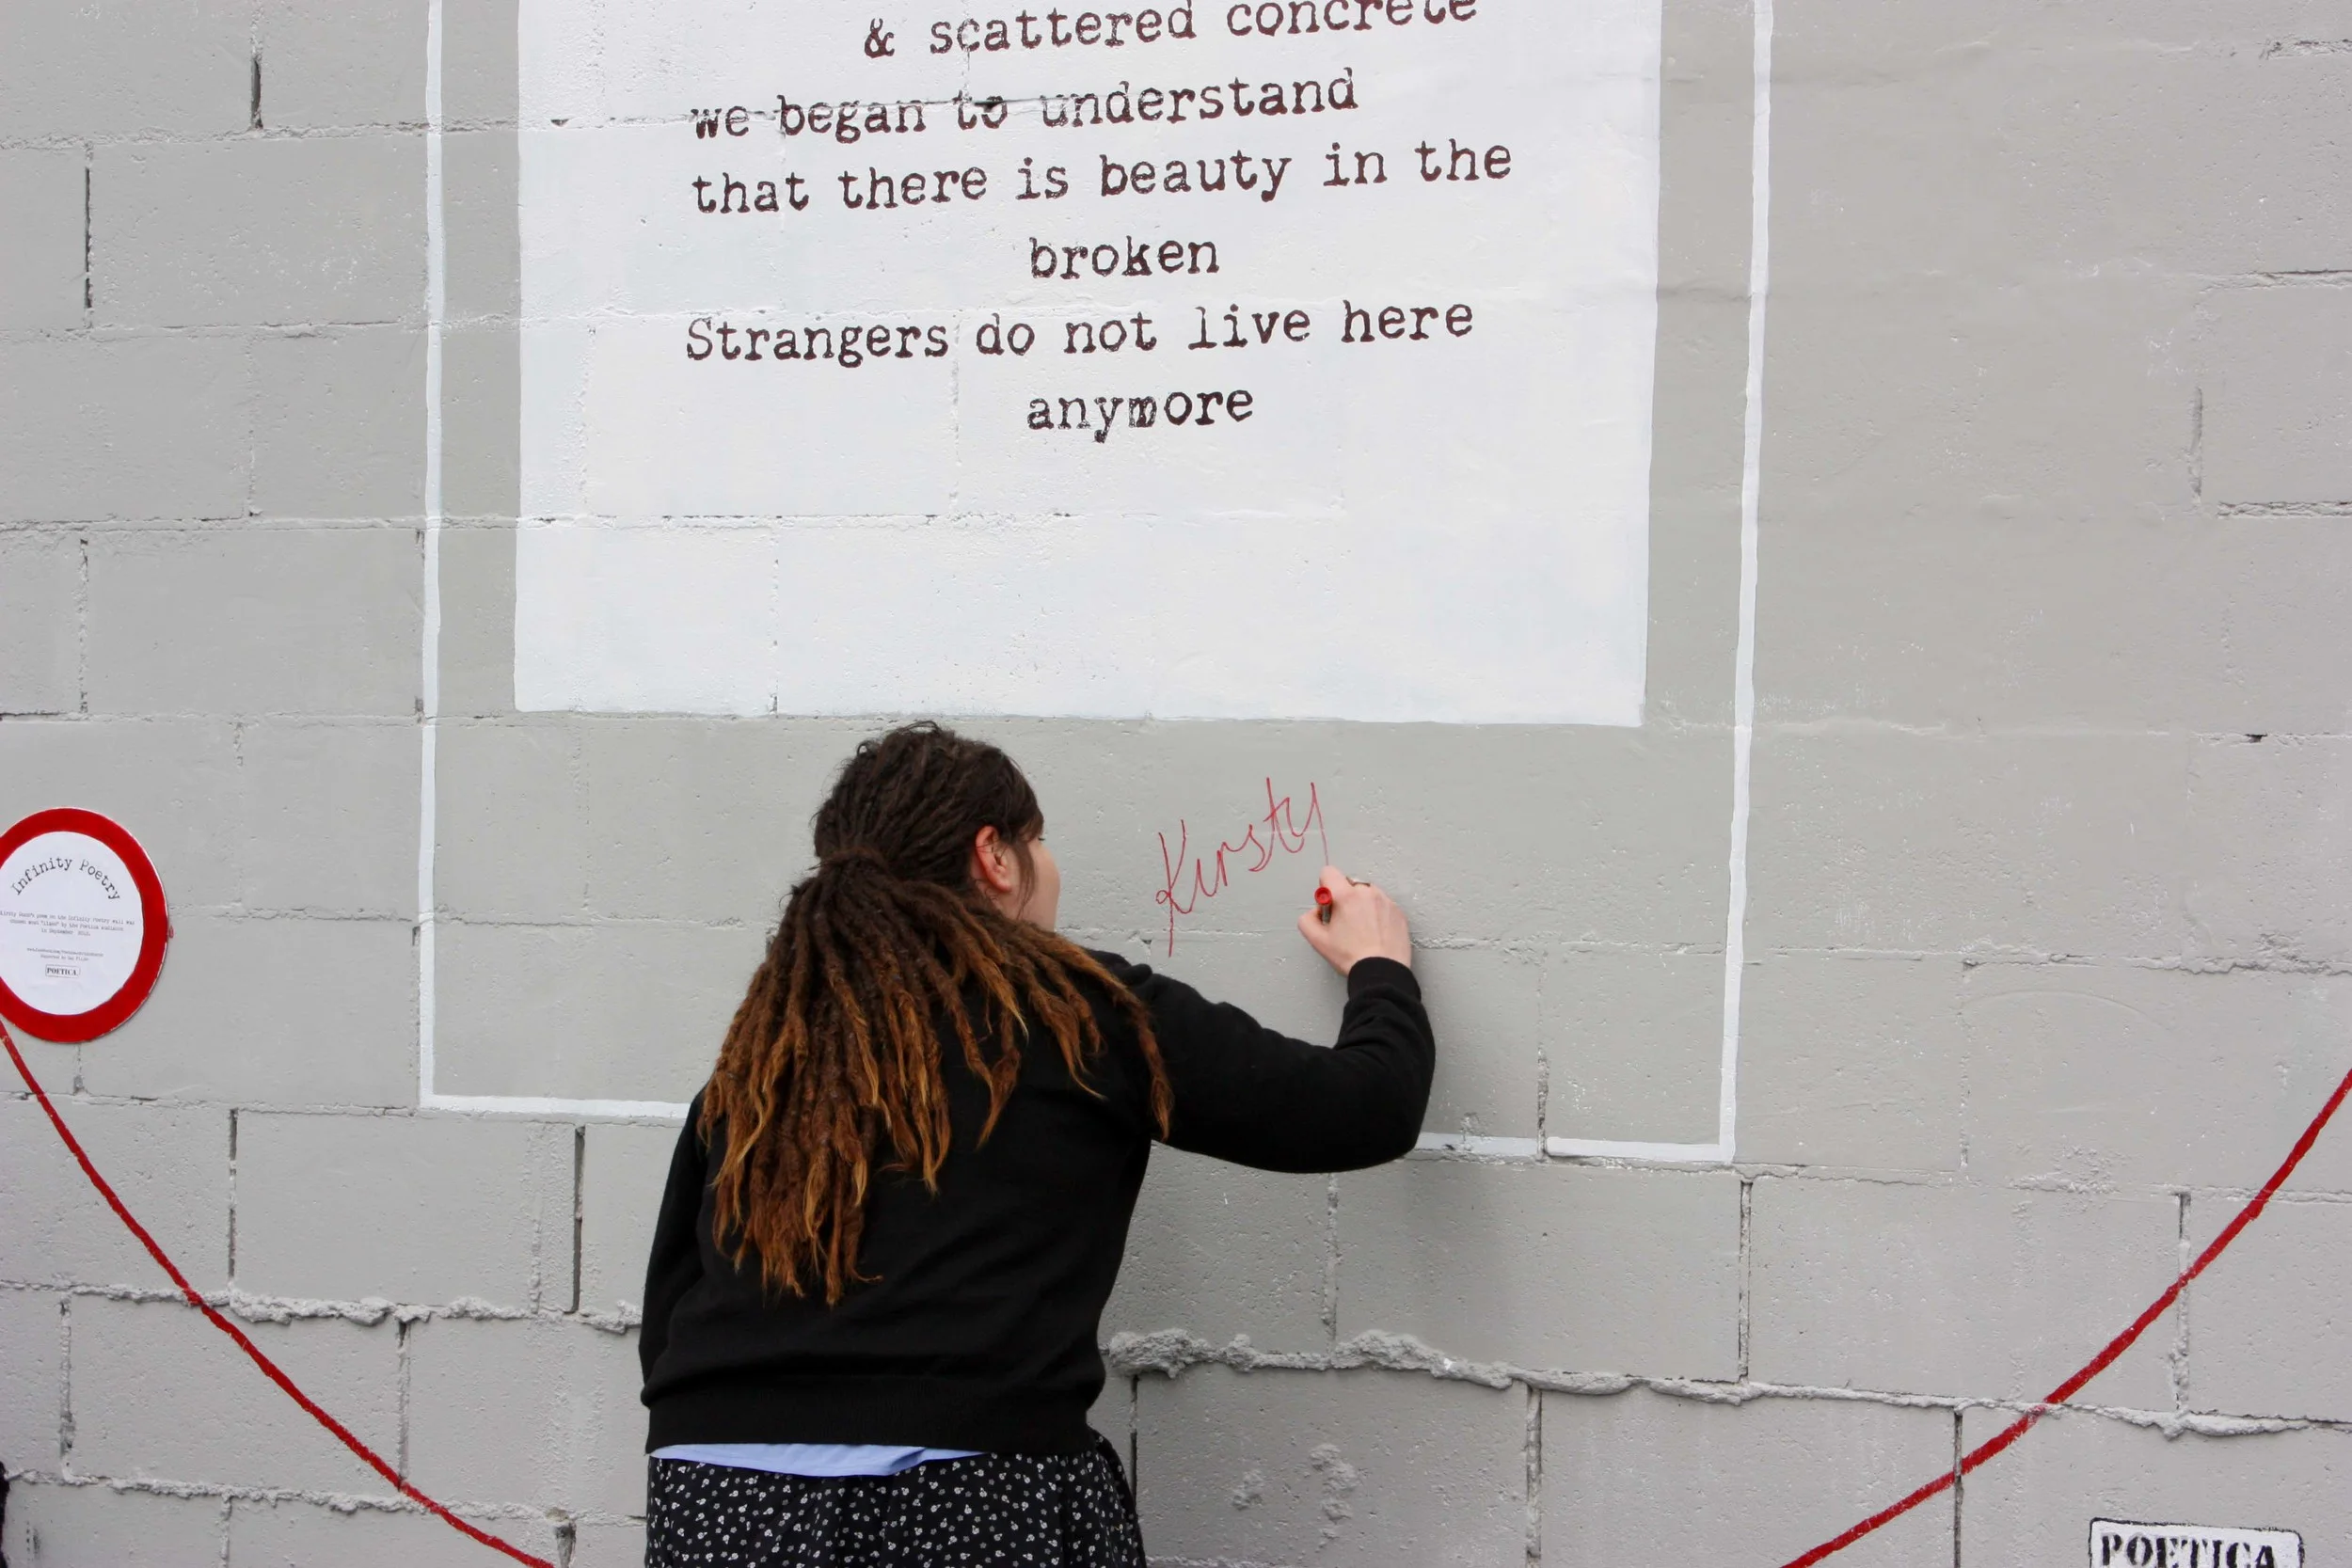 & scattered concrete
we began to understand
that there is beauty in the
broken
Strangers do not live here
anymore
Kirsty
Infinity Poetry
POETICA
POETICA